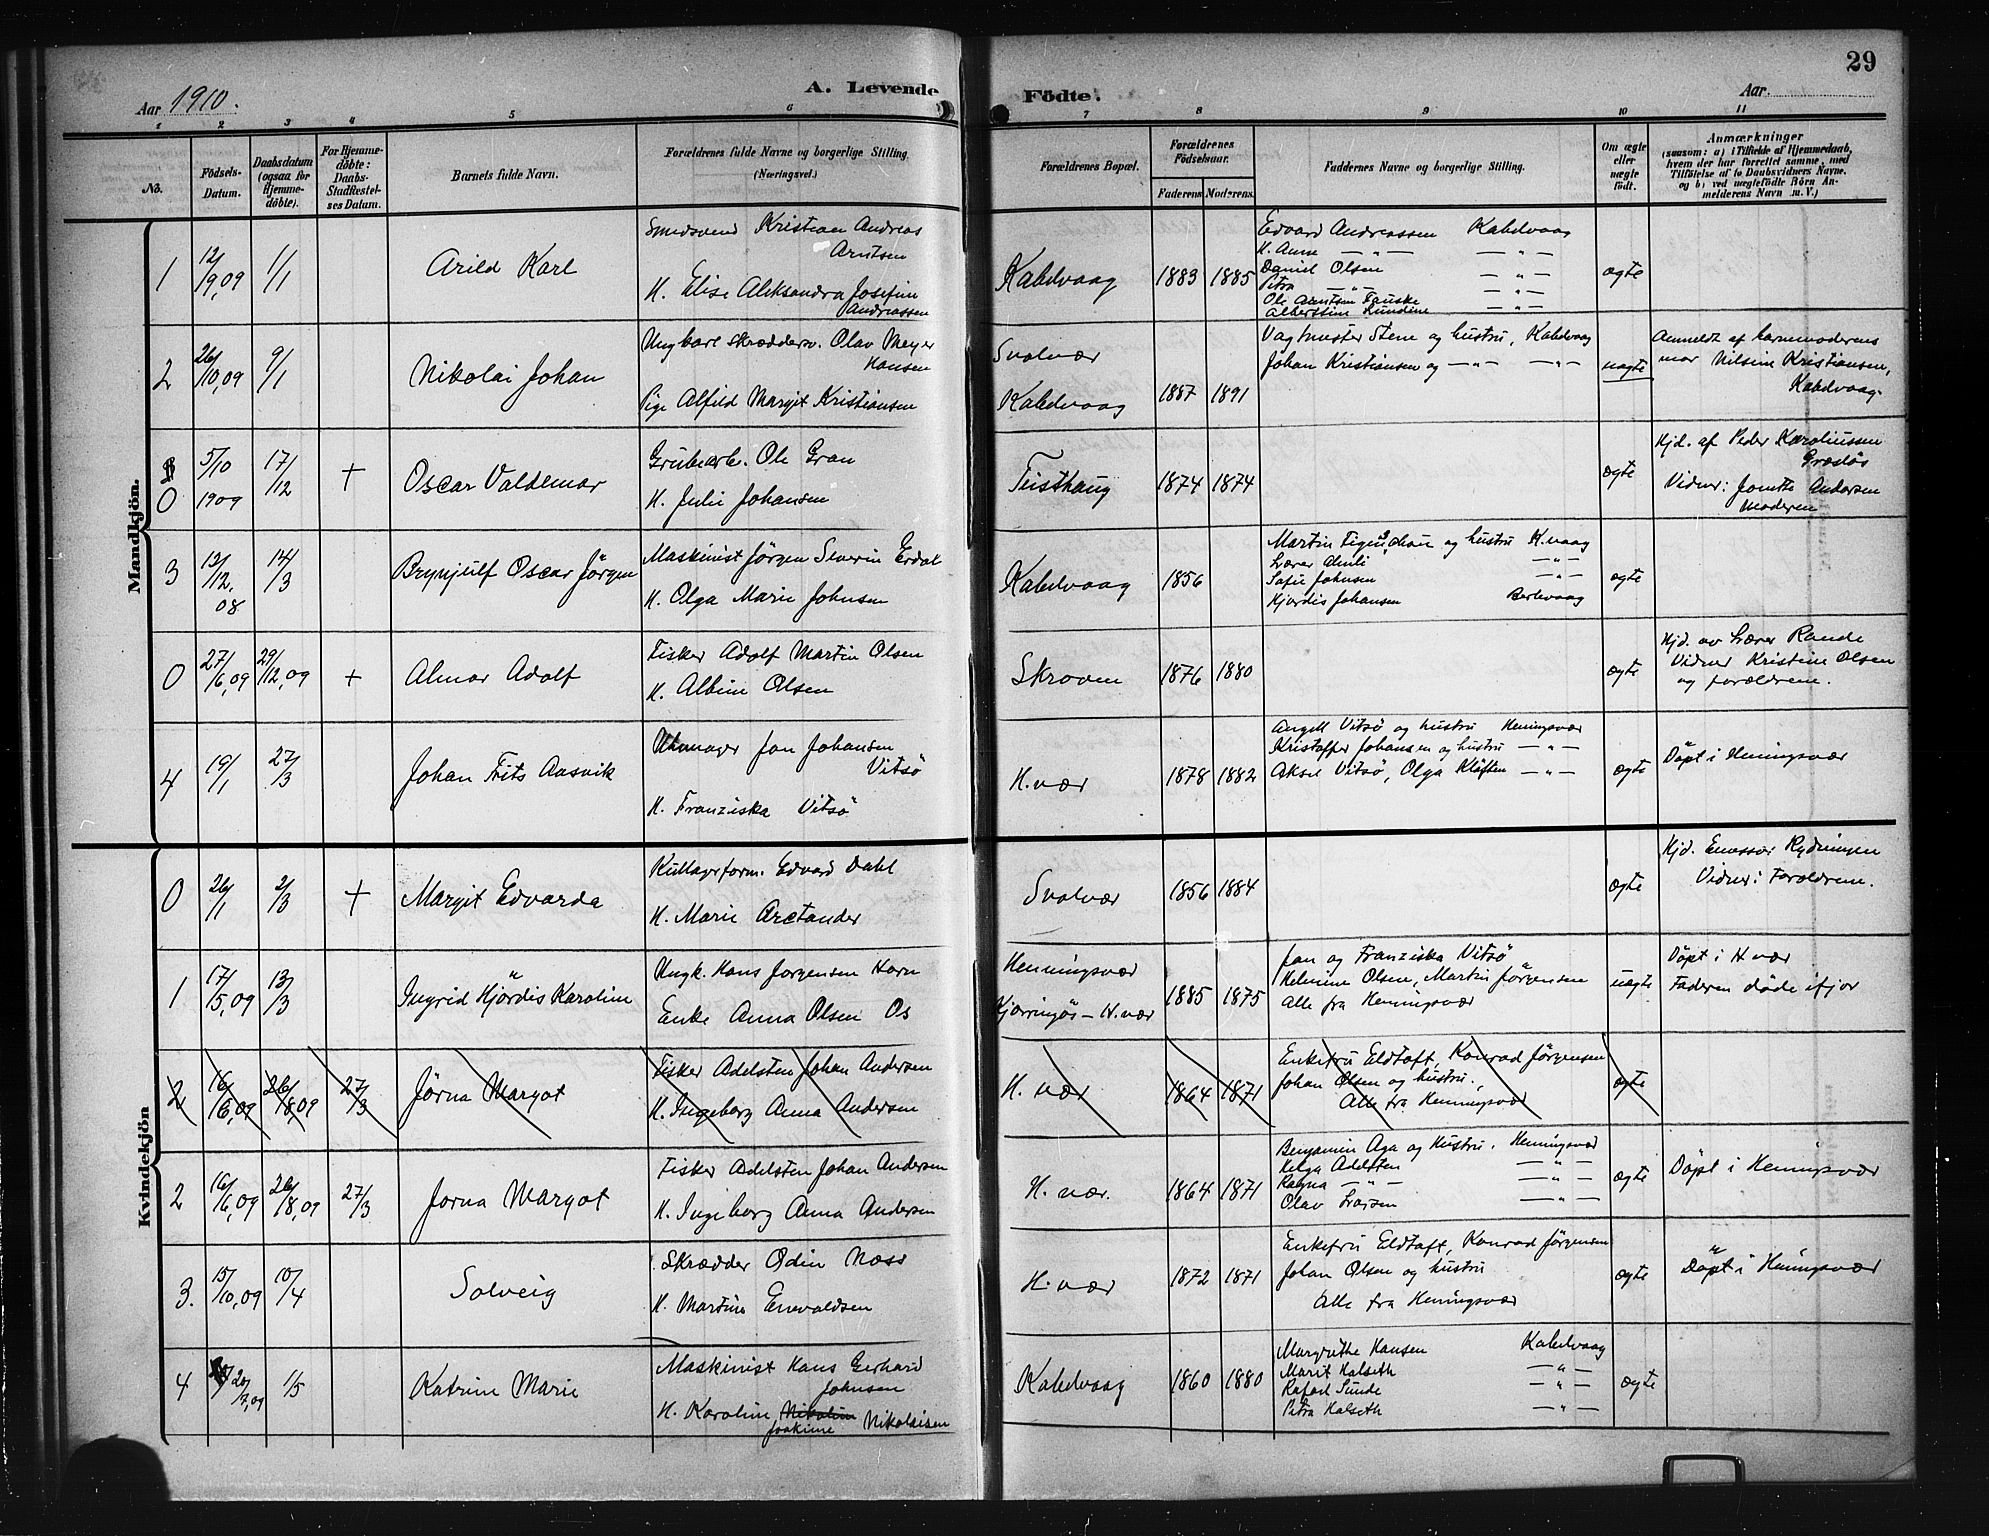 29
Aar 1910.
A. Levende
Födte.
Aar
1 2 3 4 5 6 7 8 9 10 11
No.
Födsels-
Datum.
Daabsdatum
(ogsaa for
Hjemme-
döbte).
For Hjemme-
döbte:
Daabs-
Stadfæstel-
ses Datum.
Barnets fulde Navn.
Forældrenes fulde Navne og borgerlige Stilling.
(Næringsvei.)
Forældrenes Bopæl.
Forældrenes
Födselsaar.
Faderens.
Moderens.
Faddernes Navne og borgerlige Stilling.
Om ægte
eller
uægte
födt.
Anmærkninger
(saasom: a) i Tilfælde af Hjemmedaab,
hvem der har forrettet samme, med
Tilföielse af to Daabsvidners Navne.
og b) ved uægtefödte Börn An-
melderens Navn m. V.)
Mandkjön.
1 12/9,09 1/1 Arild Karl
Smedsvend Kristian Andreas
Arntsen
H. Elise Aleksandra Josefine
Andreassen
Kabelvaag 1883 1885
Edvard Andreassen Kabelvaag
H. Anne — " — — " —
Daniel Olsen — " —
Petra — " — — " —
Ole Arntsen Fauske — " —
Albertine Lundine — " —
ægte
2 26/10,09 9/1 Nikolai Johan
Ungkarl skræddersv. Olav Meyer
Hansen
Pige Alfild Margit Kristiansen
Svolvær
Kabelvaag 1887 1891
Vagtmester Stene og hustru, Kabelvaag
Johan Kristiansen og — " — — " —
uægte
Anmeldt af barnemoderens
mor Nilsine Kristiansen,
Kabelvaag.
0 5/10 1909 17/12 + Oscar Valdemar
Grubearb. Ole Gran
H. Julie Johansen
Teisthaug 1874 1874
ægte
Hjd. af Peder Karoliussen
Græsløs
Vidner: Jonette Andersen
Moderen
3 13/12,08 14/3 Brynjulf Oscar Jörgen
Maskinist Jörgen Severin Erdal
H. Olga Marie Johnsen
Kabelvaag 1856
Martin og hustru K.vaag
Lærer Amli — " —
Sofie Johnsen — " —
Hjördis Johansen Berlevaag
ægte
0 27/6,09 29/12,09 + Almar Adolf
Fisker Adolf Martin Olsen
H. Albine Olsen
Skroven 1876 1880
ægte
Hjd. av Lærer Rande
Vidner Kristine Olsen
og forældrene.
4 19/1 27/3 Johan Frits Aasvik
Uhrmager Jan Johansen
Vitsö
H. Franziska Vitsö
H.vær 1878 1882
Angell Vitsö og hustru Henningsvær
Kristoffer Johansen og hustru — " —
Aksel Vitsö, Olga Kløften — " —
ægte
Döpt i Henningsvær
Kvindekjön
0 26/1 2/3 + Margit Edvarda
Kullagerform. Edvard Dahl
H. Marie Arctander
Svolvær 1856 1884
ægte
Hjd. Emissær Rydningen
Vidner: Forældrene.
1 17/5,09 13/3 Ingrid Hjördis Karoline
Ungk. Hans Jørgensen Horn
Enke Anna Olsen Os
Henningsvær
Kjerringöi – H.vær 1885 1875
Jan og Franziska Vitsö
Helmine Olsen, Martin Jörgensen
Alle fra Henningsvær
uægte
Döpt i H.vær
Faderen döde ifjor
2 16/6,09 26/8,09 27/3 Jörna Margot
Fisker Adelsten Johan Andersen
H. Ingeborg Anna Andersen
H. vær 1864 1871
Enkefru Eldtoft, Konrad Jörgensen
Johan Olsen og hustru.,
Alle fra Henningsvær
ægte
2 16/6,09 26/8,09 27/3 Jørna Margot
Fisker Adelsten Johan Andersen
H. Ingeborg Anna Andersen
H. vær. 1864 1871
Benjamin Aga og Hustru. Henningsvær
Helga Adelsten — " —
Ragna — " — — " —
Olav Larsen — " —
ægte
Döpt i Henningsvær
3. 15/10,09 10/4 Solveig
Skrædder Odin Næss
H. Martine Enevaldsen
H. vær 1872 1871
Enkefru Eldtoft, Konrad Jörgensen
Johan Olsen og hustru
Alle fra Henningsvær
ægte
Döpt i Henningsvær
4 20/7,09 1/5 Katrine Marie
Maskinist Hans Gerhard
Johnsen
H. Karoline Nikoline Nikolaisen
Joakime
Kabelvaag 1860 1880
Margrethe Hansen Kabelvaag
Marit Halseth — " —
Rafael Sunde — " —
Petra Halseth — " —
ægte